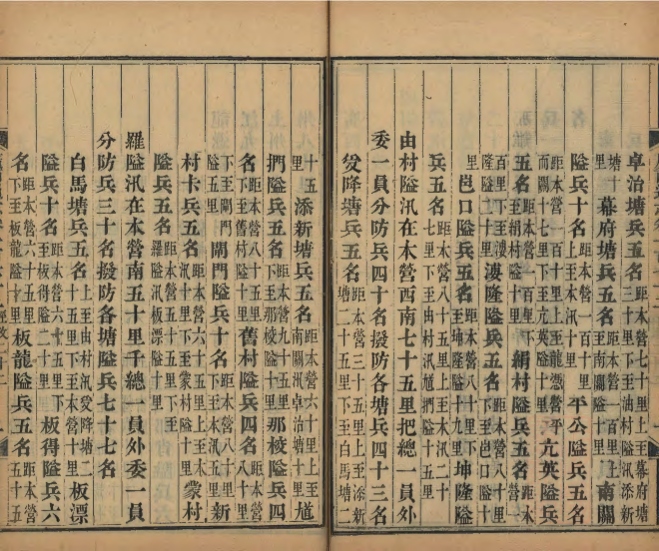 卓治塘兵五名距本營七十里上至幕府塘三十里下至由村隘汛添新
塘十里幕府塘兵五名距本營一百里上至南關隘十里南關
隘兵十名距本營一百十里上至本汛十里平公隘兵五名
距本營一百十里上至龍憑營平而關十七里下至亢英隘十里亢英隘兵
五名距本營一百里下至絹村隘十里絹村隘兵五名距本營一
百里下至漊隆隘二十里漊隆隘兵五名距本營八十里下至岜口隘十
里岜口隘兵五名距本營八十里下至坤隆隘十九里坤隆隘
兵五名距本營八十五里上至本汛二十七里下至由村汛馗捫隘十五里
由村隘汛在本營西南七十五里把總一員外
委一員分防兵四十名撥防各塘隘兵四十三名
㕛降塘兵五名距本營三十五里上至添新塘二十五里下至白馬塘二
十五里添新塘兵五名距本營六十里上至南關汛卓治塘十里馗
捫隘兵五名距本營九十五里下至那梭隘十里那梭隘兵四
名距本營八十五里下至舊村隘十里舊村隘兵四名距本營八十里
下至閘門隘五里閘門隘兵十名距本營八十里下至新村卡十里新
村卡兵五名距本營六十五里下至蒙村隘十里蒙村
隘兵五名距本營五十五里下至羅隘汛板漂隘十里
羅隘汛在本營南五十里千總一員外委一員
分防兵三十名撥防各塘隘兵七十七名
白馬塘兵五名上至由村汛㕛降塘二十五里下至本營十里板漂
隘兵十名距本營六十五里下至板得隘二十里板得隘兵六
名距本營六十五里下至板龍隘十里板龍隘兵五名距本營五十五